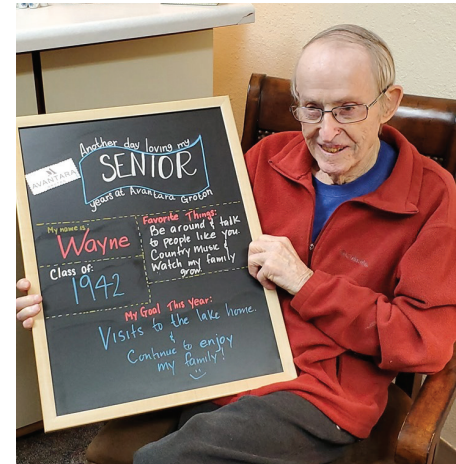 Another day loving my
SENIOR
years at Avantara Groton
AVANTARA
My name is:
Wayne
Class of:
1942
Favorite Things:
Be around & talk
to people like you.
Country Music &
Watch my family
grow.
My Goal This Year:
Visits to the lake home.
&
Continue to enjoy
my family!